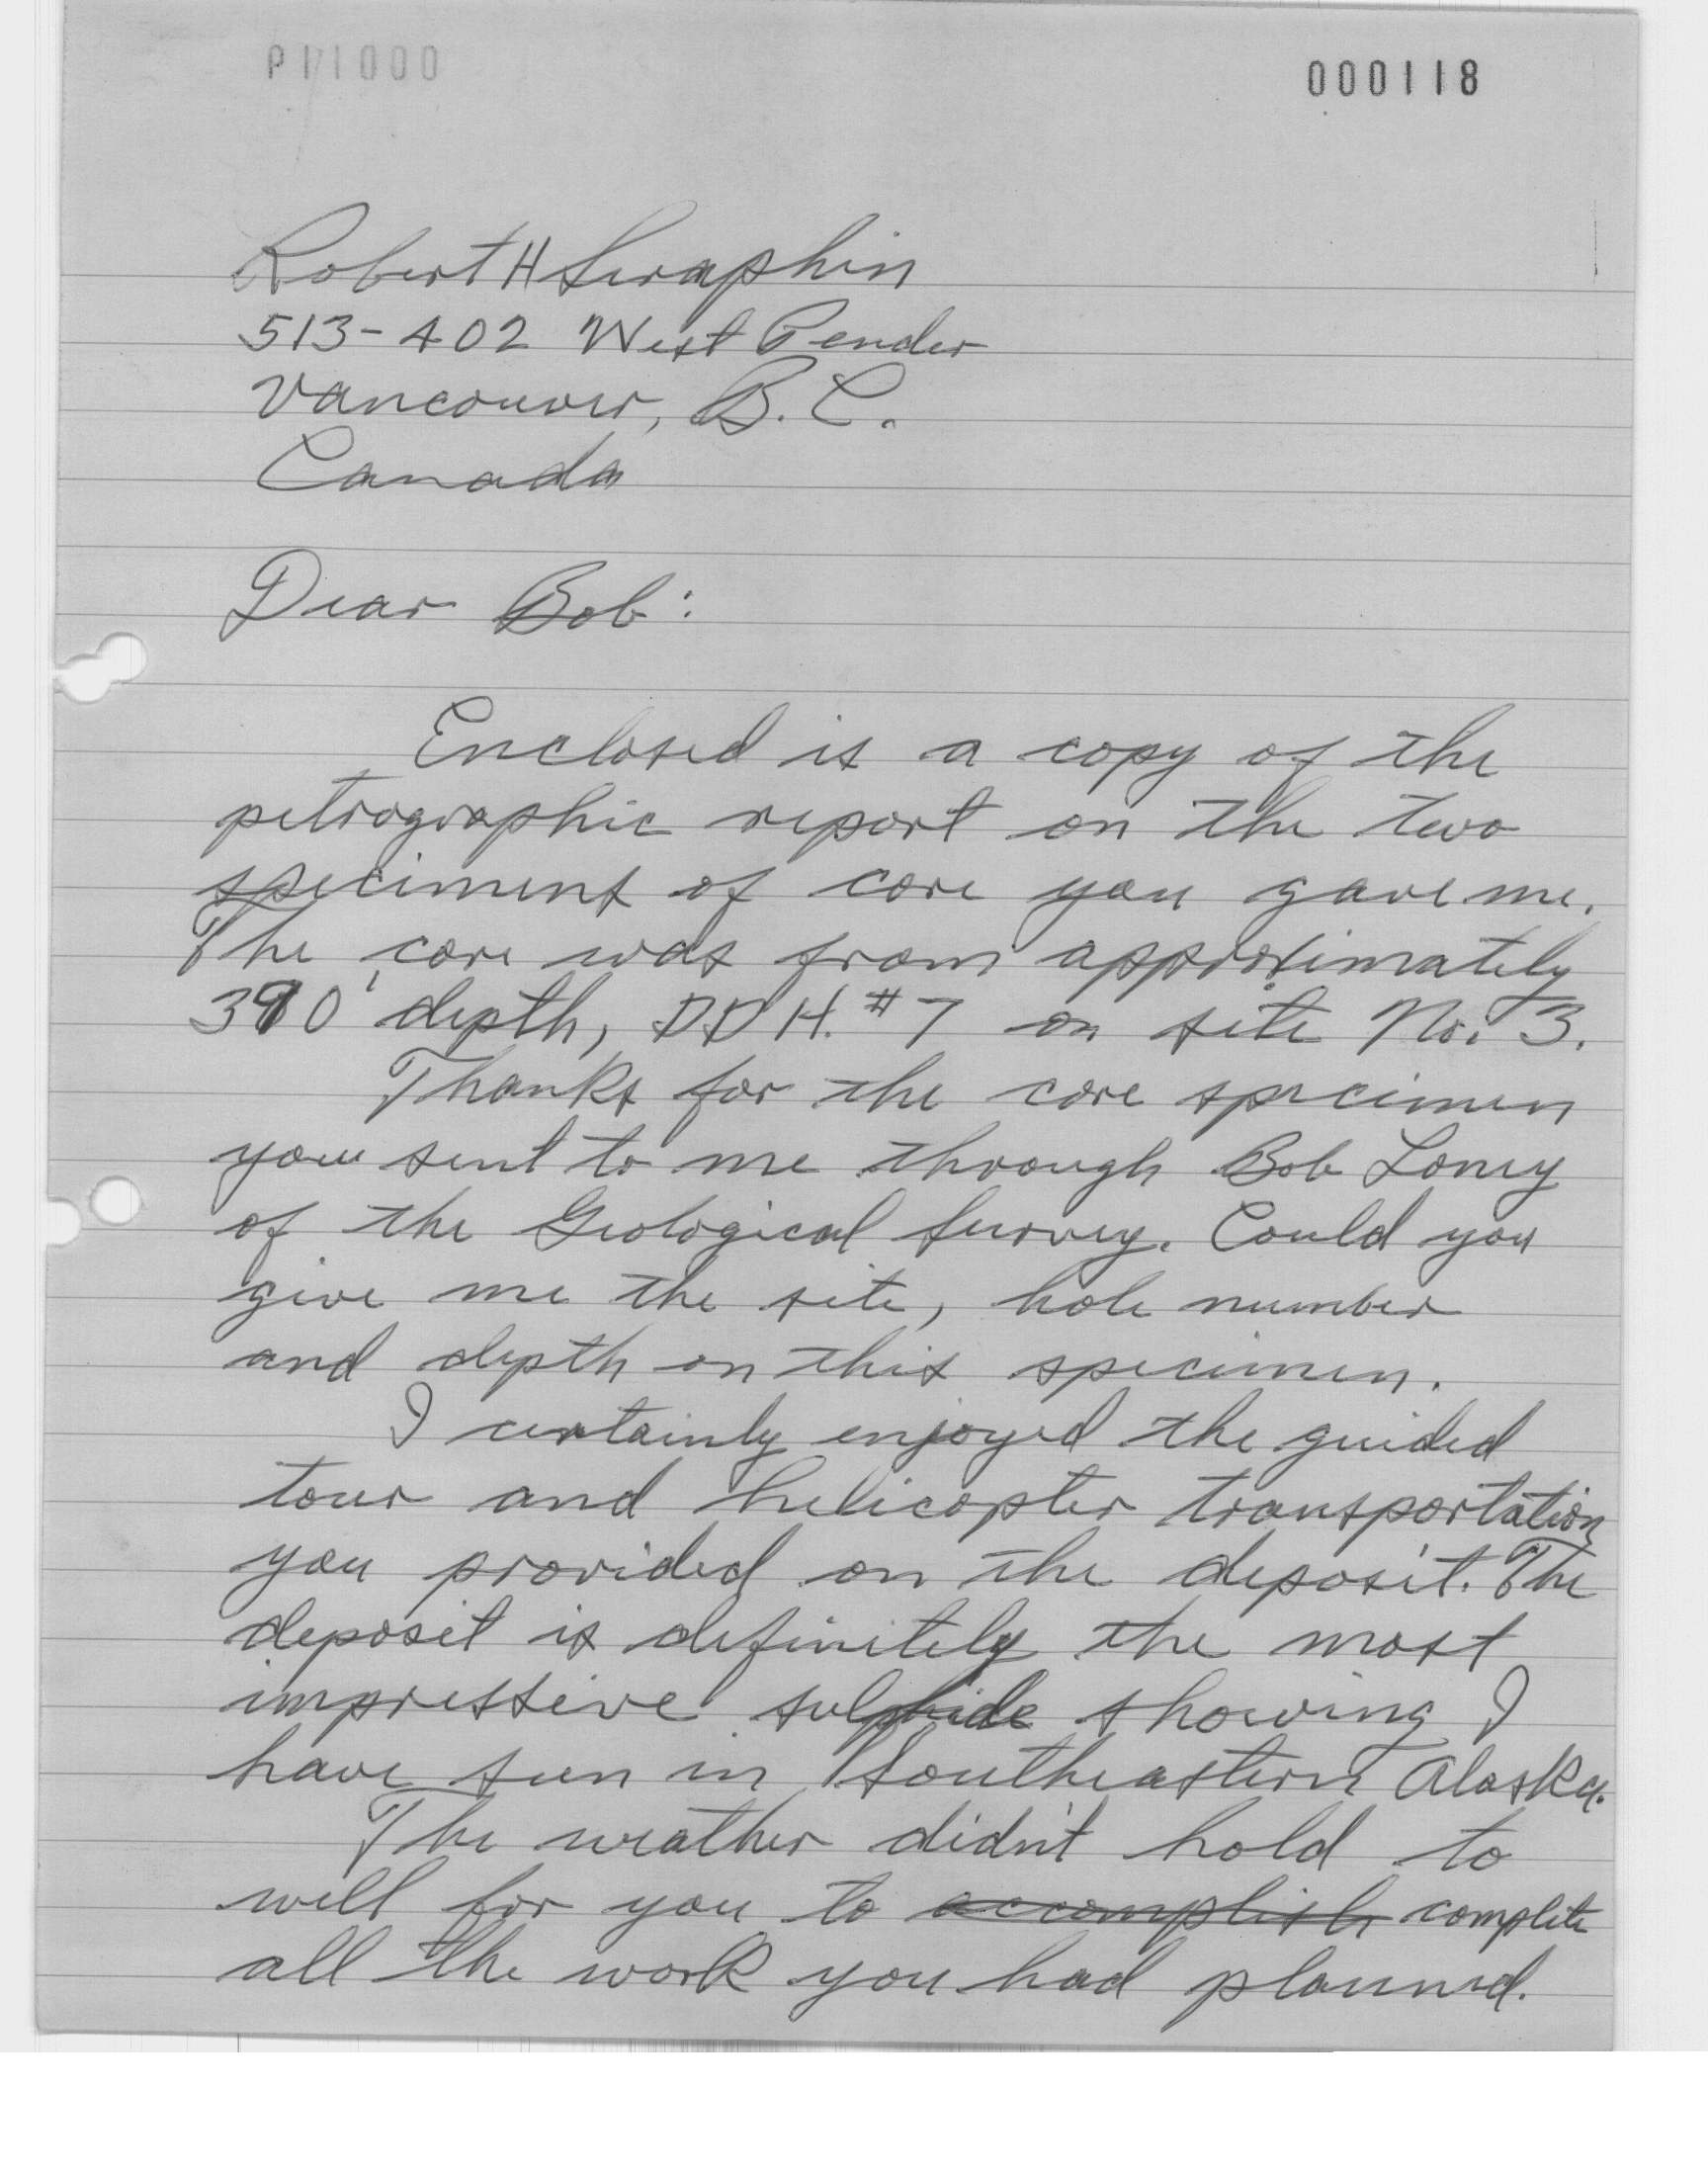 000118
Robert H Seraphin
513-402 West Pender
Vancouver, B.C.
Canada
Dear Bob:
Enclosed is a copy of the
petrographic report on the two
speciments of core you gave me.
The core was from approximately
390' depth, DDH. #7 on site No. 3.
Thanks for the core specimen
you sent to me through Bob Loney
of the Geological Survey. Could you
give me the site, hole number
and depth on this specimen.
I certainly enjoyed the guided
tour and helicopter transportation
you provided on the deposit. The
deposit is definitely the most
impressive sulphide showing I
have seen in Southeastern Alaska.
The weather didn't hold to
well for you to accomplish complete
all the work you had planned.